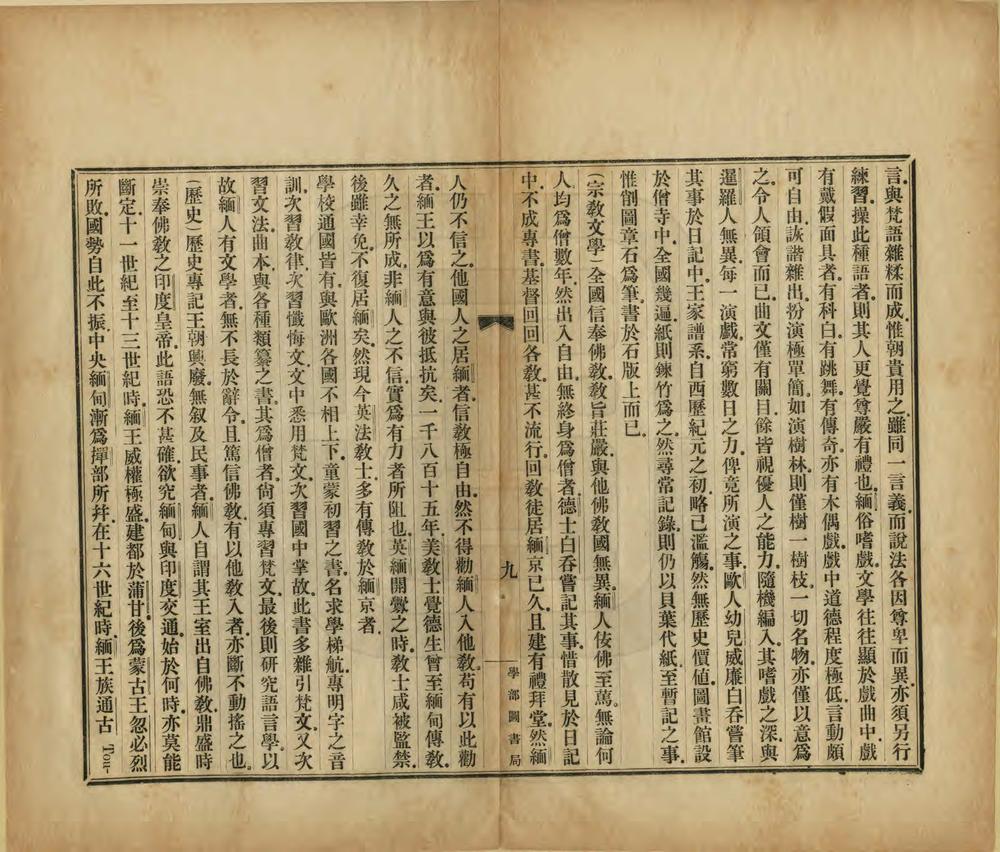 言與梵語雜糅而成惟朝貴用之雖同一言義而說法各因尊卑而異亦須另行
練習操此種語者則其人更覺尊嚴有禮也緬俗嗜戲文學往往顯於戲曲中戲
有戴假面具者有科白有跳舞有傳奇亦有木偶戲戲中道德程度極低言動頗
可自由詼諧雜出扮演極單簡如演樹林則僅樹一樹枝一切名物亦僅以意爲
之令人領會而已曲文僅有關目餘皆視優人之能力隨機編入其嗜戲之深與
暹羅人無異每一演戲常窮數日之力俾竟所演之事歐人幼兒威廉白吞嘗筆
其事於日記中王家譜系自西歷紀元之初略已濫觴然無歷史價値圖書館設
於僧寺中全國幾遍紙則鍊竹爲之然尋常記錄則仍以貝葉代紙至暫記之事
惟劊圖章石爲筆書於石版上而已
(宗敎文學)全國信奉佛敎敎旨莊嚴與他佛敎國無異緬人佞佛至篤無論何
人均爲僧數年然出入自由無終身爲僧者德士白吞嘗記其事惜散見於日記
中不成專書基督回回各敎甚不流行回敎徒居緬京已久且建有禮拜堂然緬
九
學部圖書局
人仍不信之他國人之居緬者信敎極自由然不得勸緬人入他敎苟有以此勸
者緬王以爲有意與彼抵抗矣一千八百十五年美敎士覺德生曾至緬甸傳敎
久之無所成非緬人之不信實爲有力者所阻也英緬開釁之時敎士咸被監禁
後雖幸免不復居緬矣然現今英法敎士多有傳敎於緬京者
學校通國皆有與歐洲各國不相上下童蒙初習之書名求學梯航專明字之音
訓次習敎律次習懺悔文文中悉用梵文次習國中掌故此書多雜引梵文又次
習文法曲本與各種類纂之書其爲僧者尙須專習梵文最後則研究語言學以
故緬人有文學者無不長於辭令且篤信佛敎有以他敎入者亦斷不動搖之也
(歷史)歷史專記王朝興廢無叙及民事者緬人自謂其王室出自佛敎鼎盛時
崇奉佛敎之印度皇帝此語恐不甚確欲究緬甸與印度交通始於何時亦莫能
斷定十一世紀至十三世紀時緬王威權極盛建都於蒲甘後爲蒙古王忽必烈
所敗國勢自此不振中央緬甸漸爲撣部所幷在十六世紀時緬王族通古 Tou-